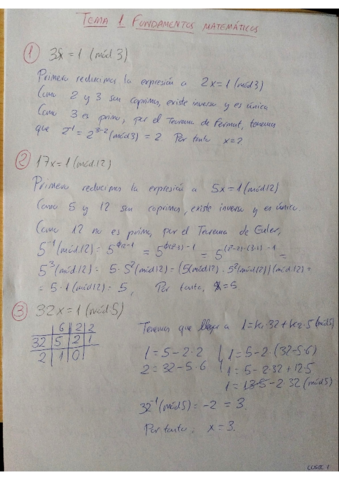 TEMA 1 FUNDAMENTOS MATEMÁTICOS
① 38x = 1 (mód 3)
Primero reducimos la expresión a 2x = 1 (mód 3)
Como 2 y 3 son coprimos, existe inverso y es único
Como 3 es primo, por el Teorema de Fermat, tenemos
que 2⁻¹ = 2³⁻² (mód 3) = 2. Por tanto x = 2
② 17x = 1 (mód 12)
Primero reducimos la expresión a 5x = 1 (mód 12)
Como 5 y 12 son coprimos, existe inverso y es único.
Como 12 no es primo, por el Teorema de Euler,
5⁻¹ (mód 12) =
5³ (mód 12) = 5·5² (mód 12) = (5 (mód 12) · 5² (mód 12)) (mód 12) =
= 5·1 (mód 12) = 5. Por tanto, x = 5
③ 32x = 1 (mód 5)
6 2 2
32 5 2 1
2 1 0
Tenemos que llegar a
1 = 5 - 2·2
2 = 32 - 5·6
1 = 5 - 2 (32 - 5·6)
1 = 5 - 2·32 + 12·5
1 = 13·5 - 2·32 (mód 5)
32⁻¹ (mód 5) = -2 = 3.
Por tanto, x = 3.